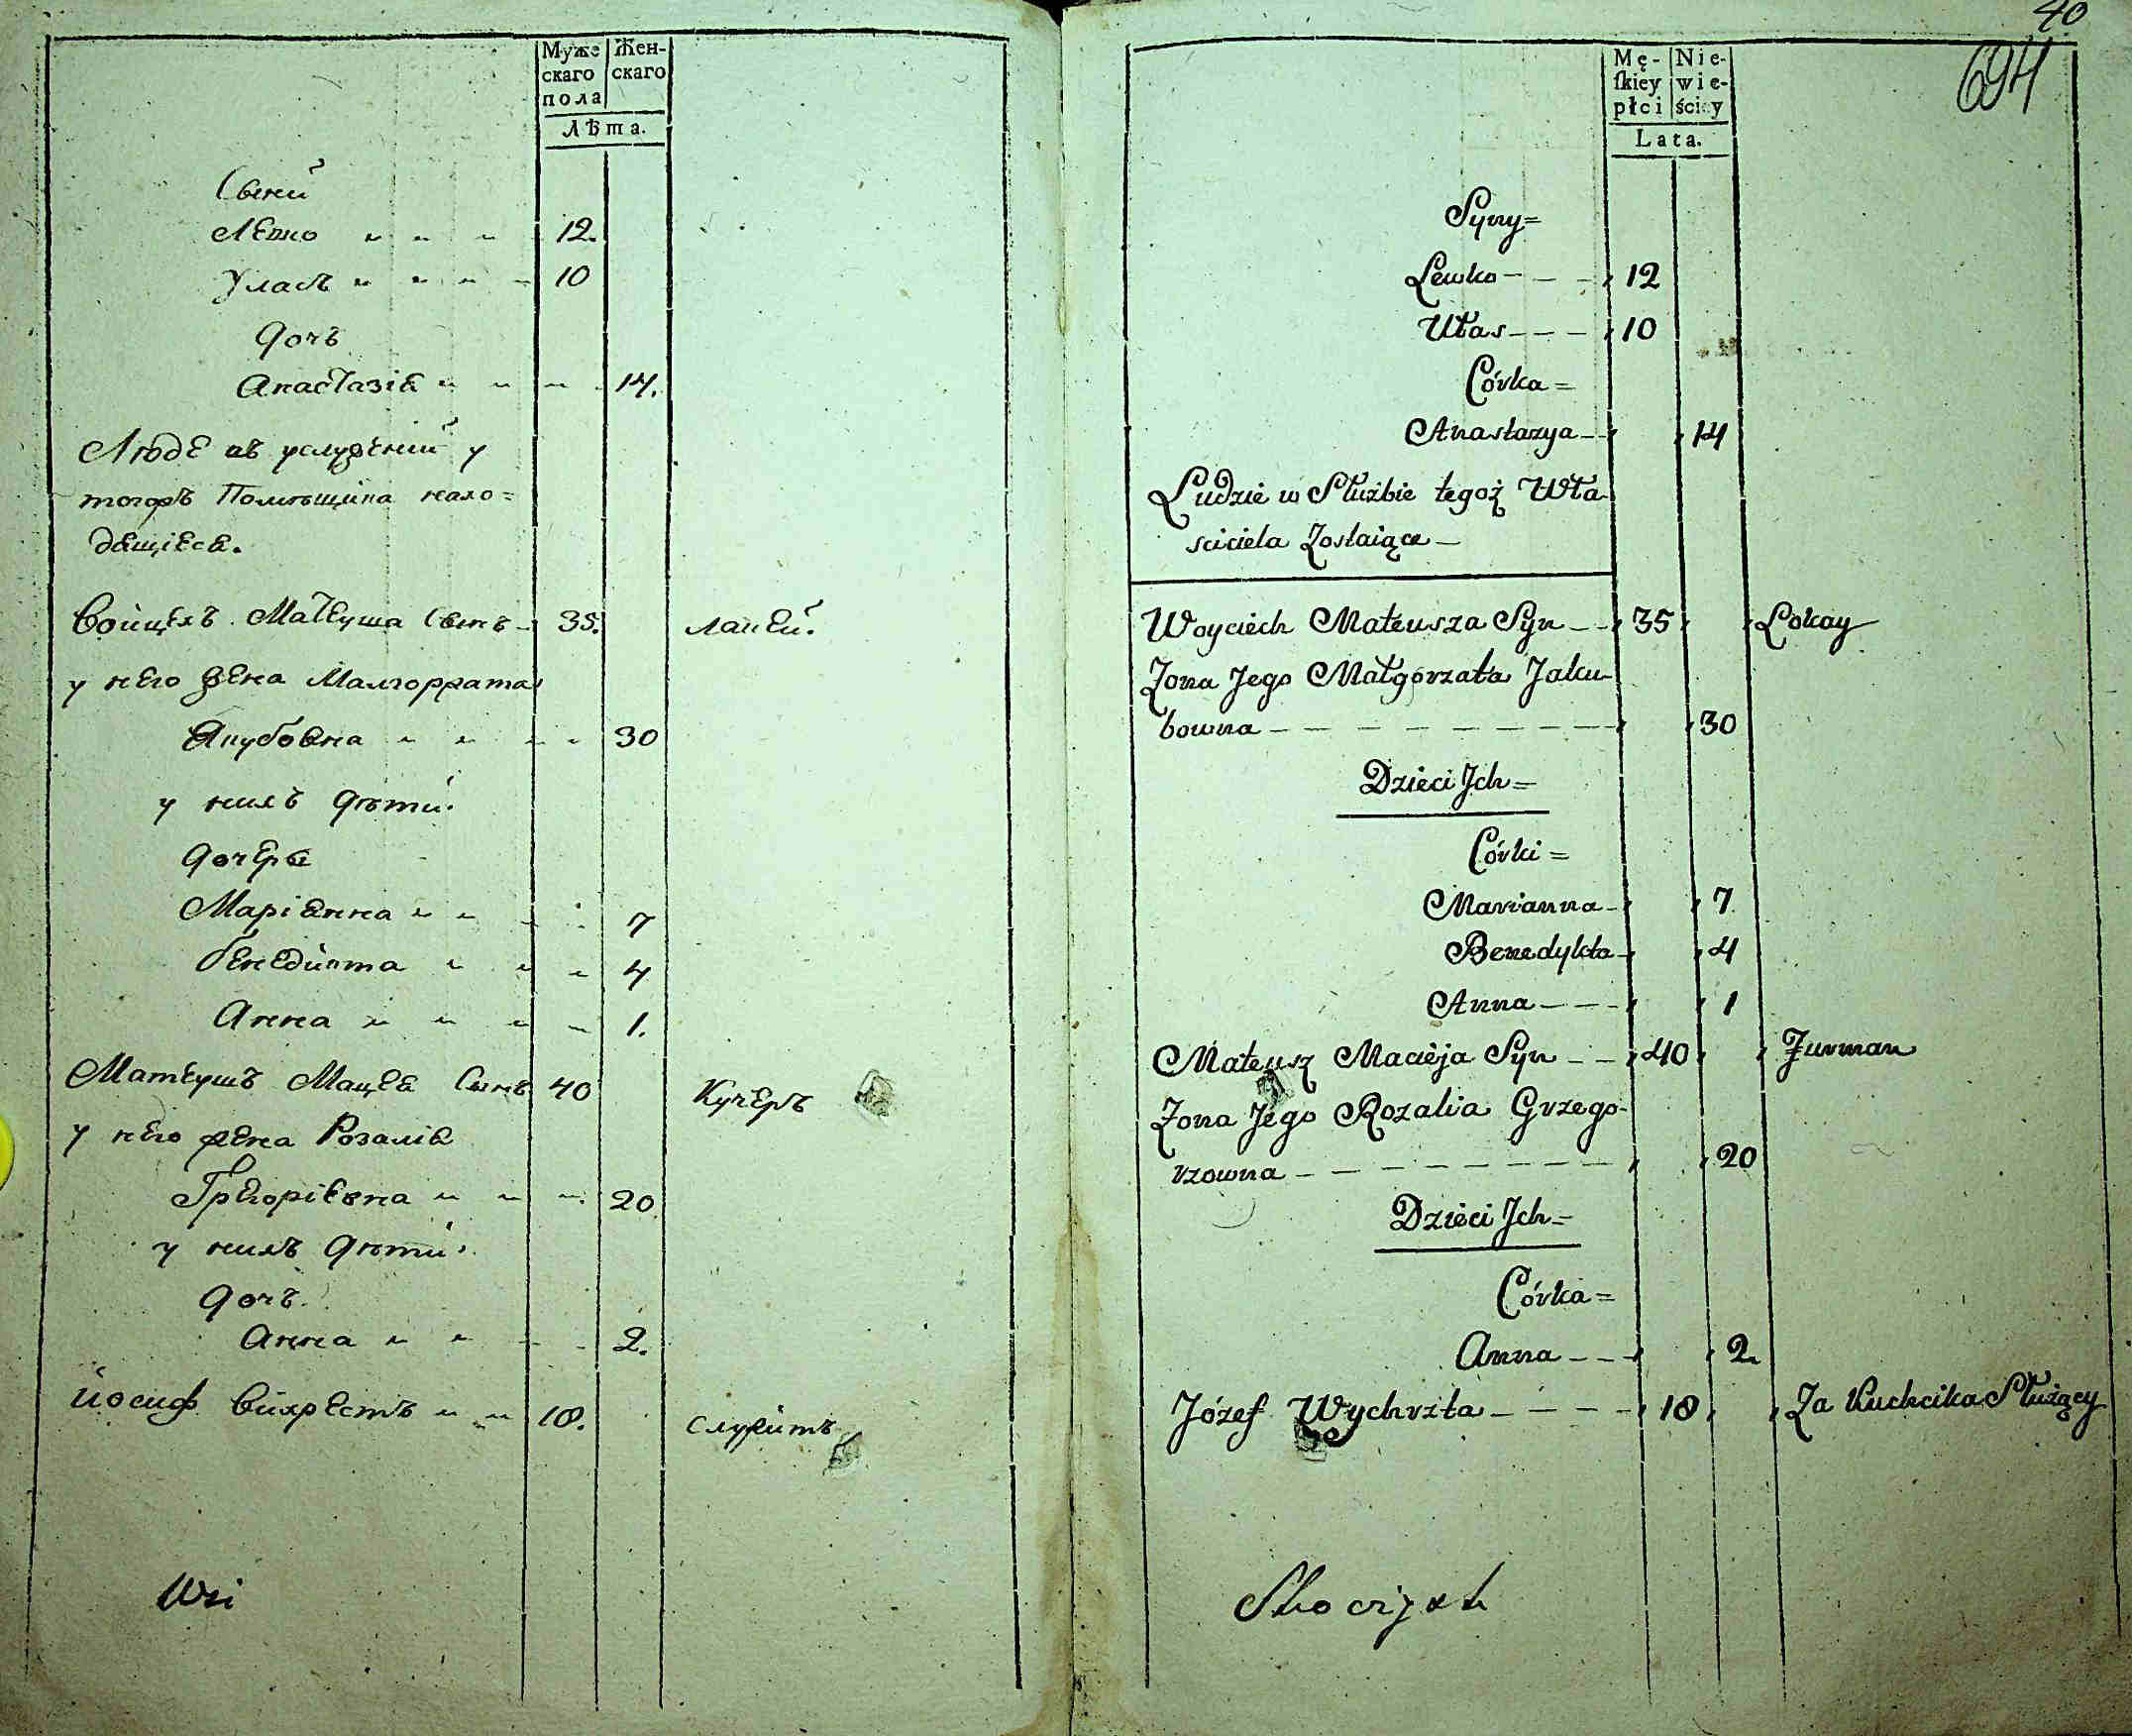 Муже Жен-
скаго скаго
пола
Лѣта.
Сыны
Левко 12.
Уласъ 10
Дочь
Анастазія 14.
Люде въ услуженіи у
тогожъ Помѣщика нахо=
дящіеся.
Войцехъ Матеуша Сынъ 35. лакей.
у него жена Малгоржата
Якубовна 30
у нихъ дѣти.
Дочеры
Маріянна 7
Бенедикта 4
Анна 1.
Матеушъ Мацея Сынъ 40 Кучеръ
у него жена Розалія
Грегоріевна 20
у нихъ дѣти.
Дочь.
Анна 2.
Иосиф 18. служитъ
Wsi
40
694
Mę- Nie-
ſkiey wie-
płci ściey
Lata.
Syny=
Lewko - - - 12
Ułas - - - 10
Córka=
Anastazya - 14
Ludzie w Służbie tegoż Wła-
sciciela Zostaiące -
Woyciech Mateusza Syn - - 35 Lokay
Zona Jego Małgorzata Jaku-
bowna - - - - - - - - 30
Dzieci Jch=
Córki=
Marianna - 7
Benedykta - 4
Anna - - - 1
Mateusz Macieja Syn - - 40 Furman
Zona Jego Rozalia Grzego-
rzowna - - - - - - - - 20
Dzieci Jch=
Córka=
Anna - - - 2.
Józef Wychrzta - - - - 18 Za Kuchcika Służący